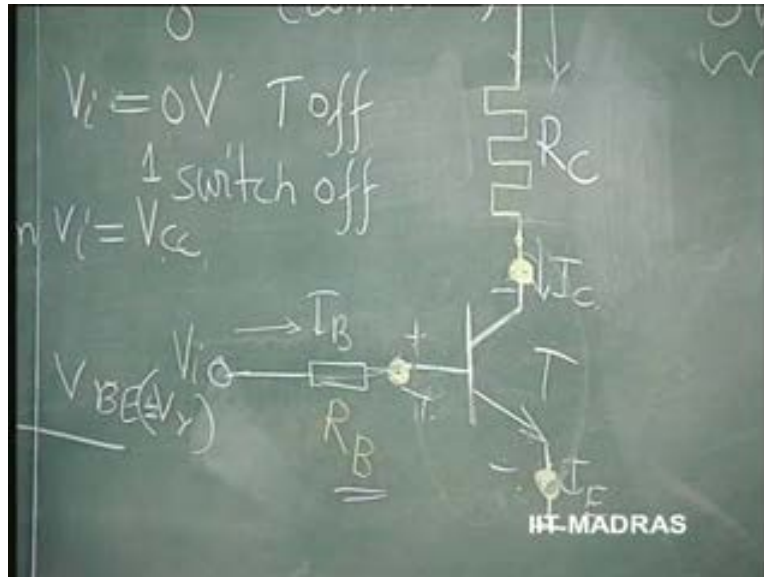 0
Vi = 0V T off
1 switch off
Vi = Vcc
RC
IC
IB
Vi
+
-
T
VBE(=Vγ)
RB
-
IE
IIT MADRAS